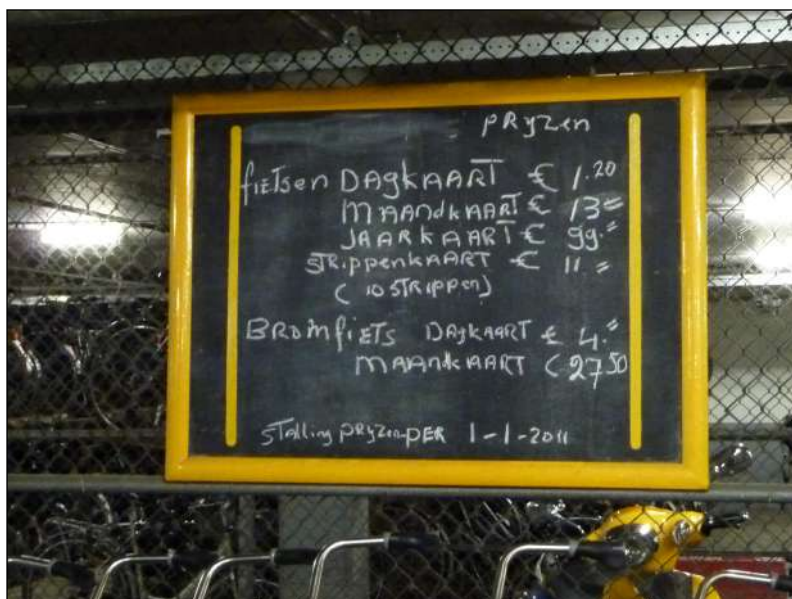 PRyzen
fietsen DAgkAART € 1.20
MAANdkAART € 13.=
JAARKAART € 99.=
STRippenkAART € 11.=
(10 STRIppen)
BROMfiets DAgkAART € 4.=
MAANkAART € 27.50
STAlling pRyzen PER 1-1-2011